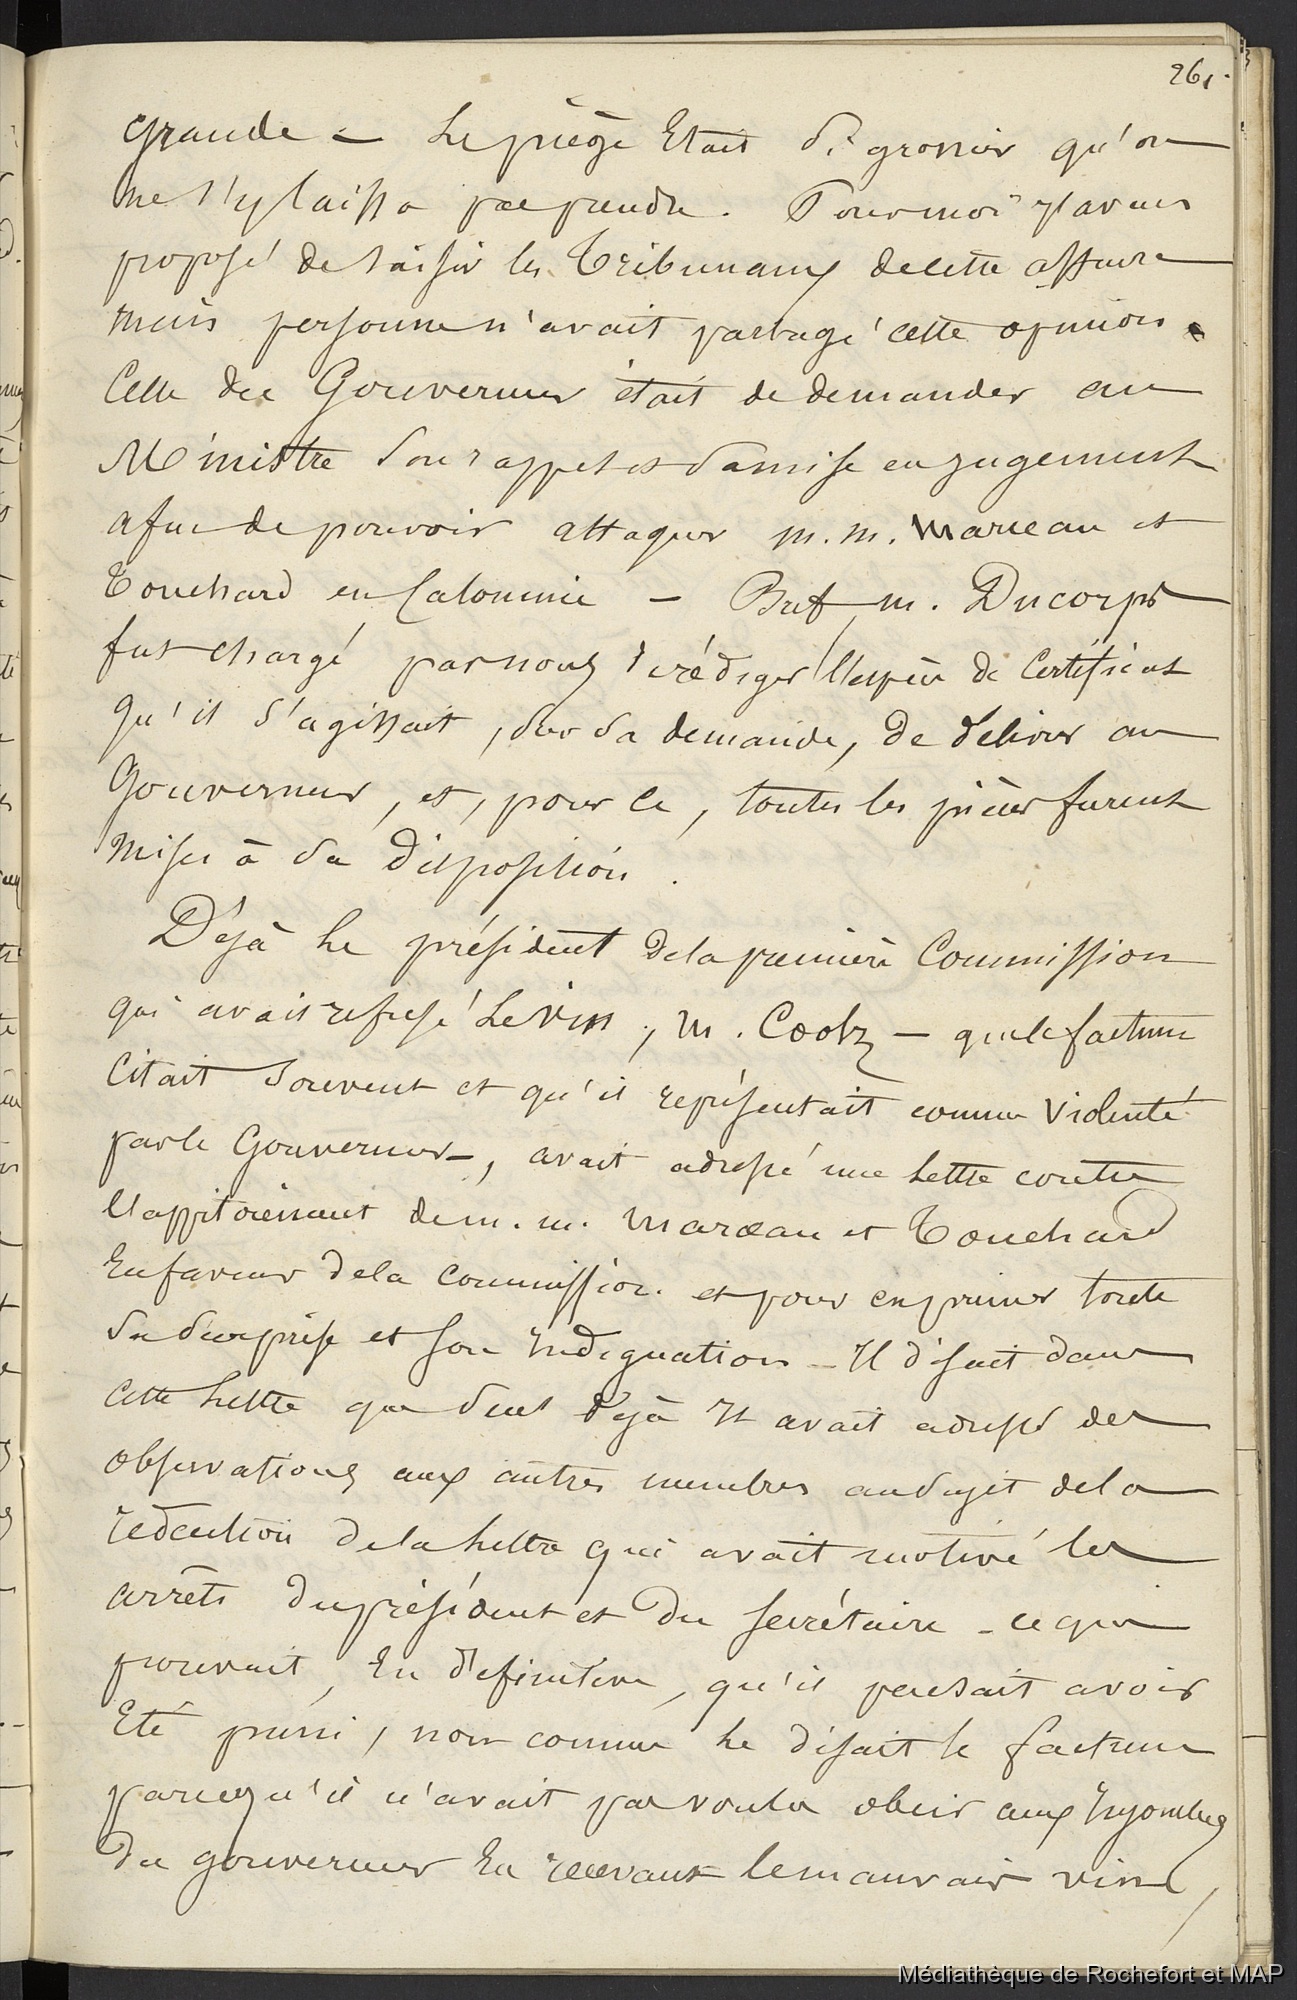 261.
grande – Le piège Etait Si grossier qu'on
ne s'y laissa pas prendre. Pour moi j'avais
proposé de saisir les Tribunaux de cette affaire
mais personne n'avait partagé cette opinion.
Celle du Gouverneur était de demander au
Ministre Son rappel et sa mise en jugement
afin de pouvoir attaquer m. m. Marceau et
Touchard en Calomnie – Bref m. Ducorps
fut chargé par nous de rédiger l'espèce de Certificat
qu'il s'agissait, sur sa demande, de délivrer au
Gouverneur, et, pour ce, toutes les pièces furent
mises à sa disposition.
Déjà Le président de la première Commission
qui avait refusé Le vin, M. Coolz – que le factum
Citait Souvent et qu'il représentait comme Violenté
par le Gouverneur –, avait adressé une Lettre contre
l'appitoiement de m. m. Marceau et Touchard
En faveur de la Commission. et pour exprimer toute
Sa surprise et son Indignation – Il disait dans
cette Lettre que Seul déjà Il avait adressé des
observations aux autres membres au Sujet de la
rédaction de la Lettre qui avait motivé les
arrêts du président et du secrétaire – ce qui
prouvait, En définitive, qu'il pensait avoir
Eté puni, non comme Le disait le factum
parcequ'il n'avait pas voulu obeir aux
du gouverneur En recevant le mauvais vin,
Médiathèque de Rochefort et MAP